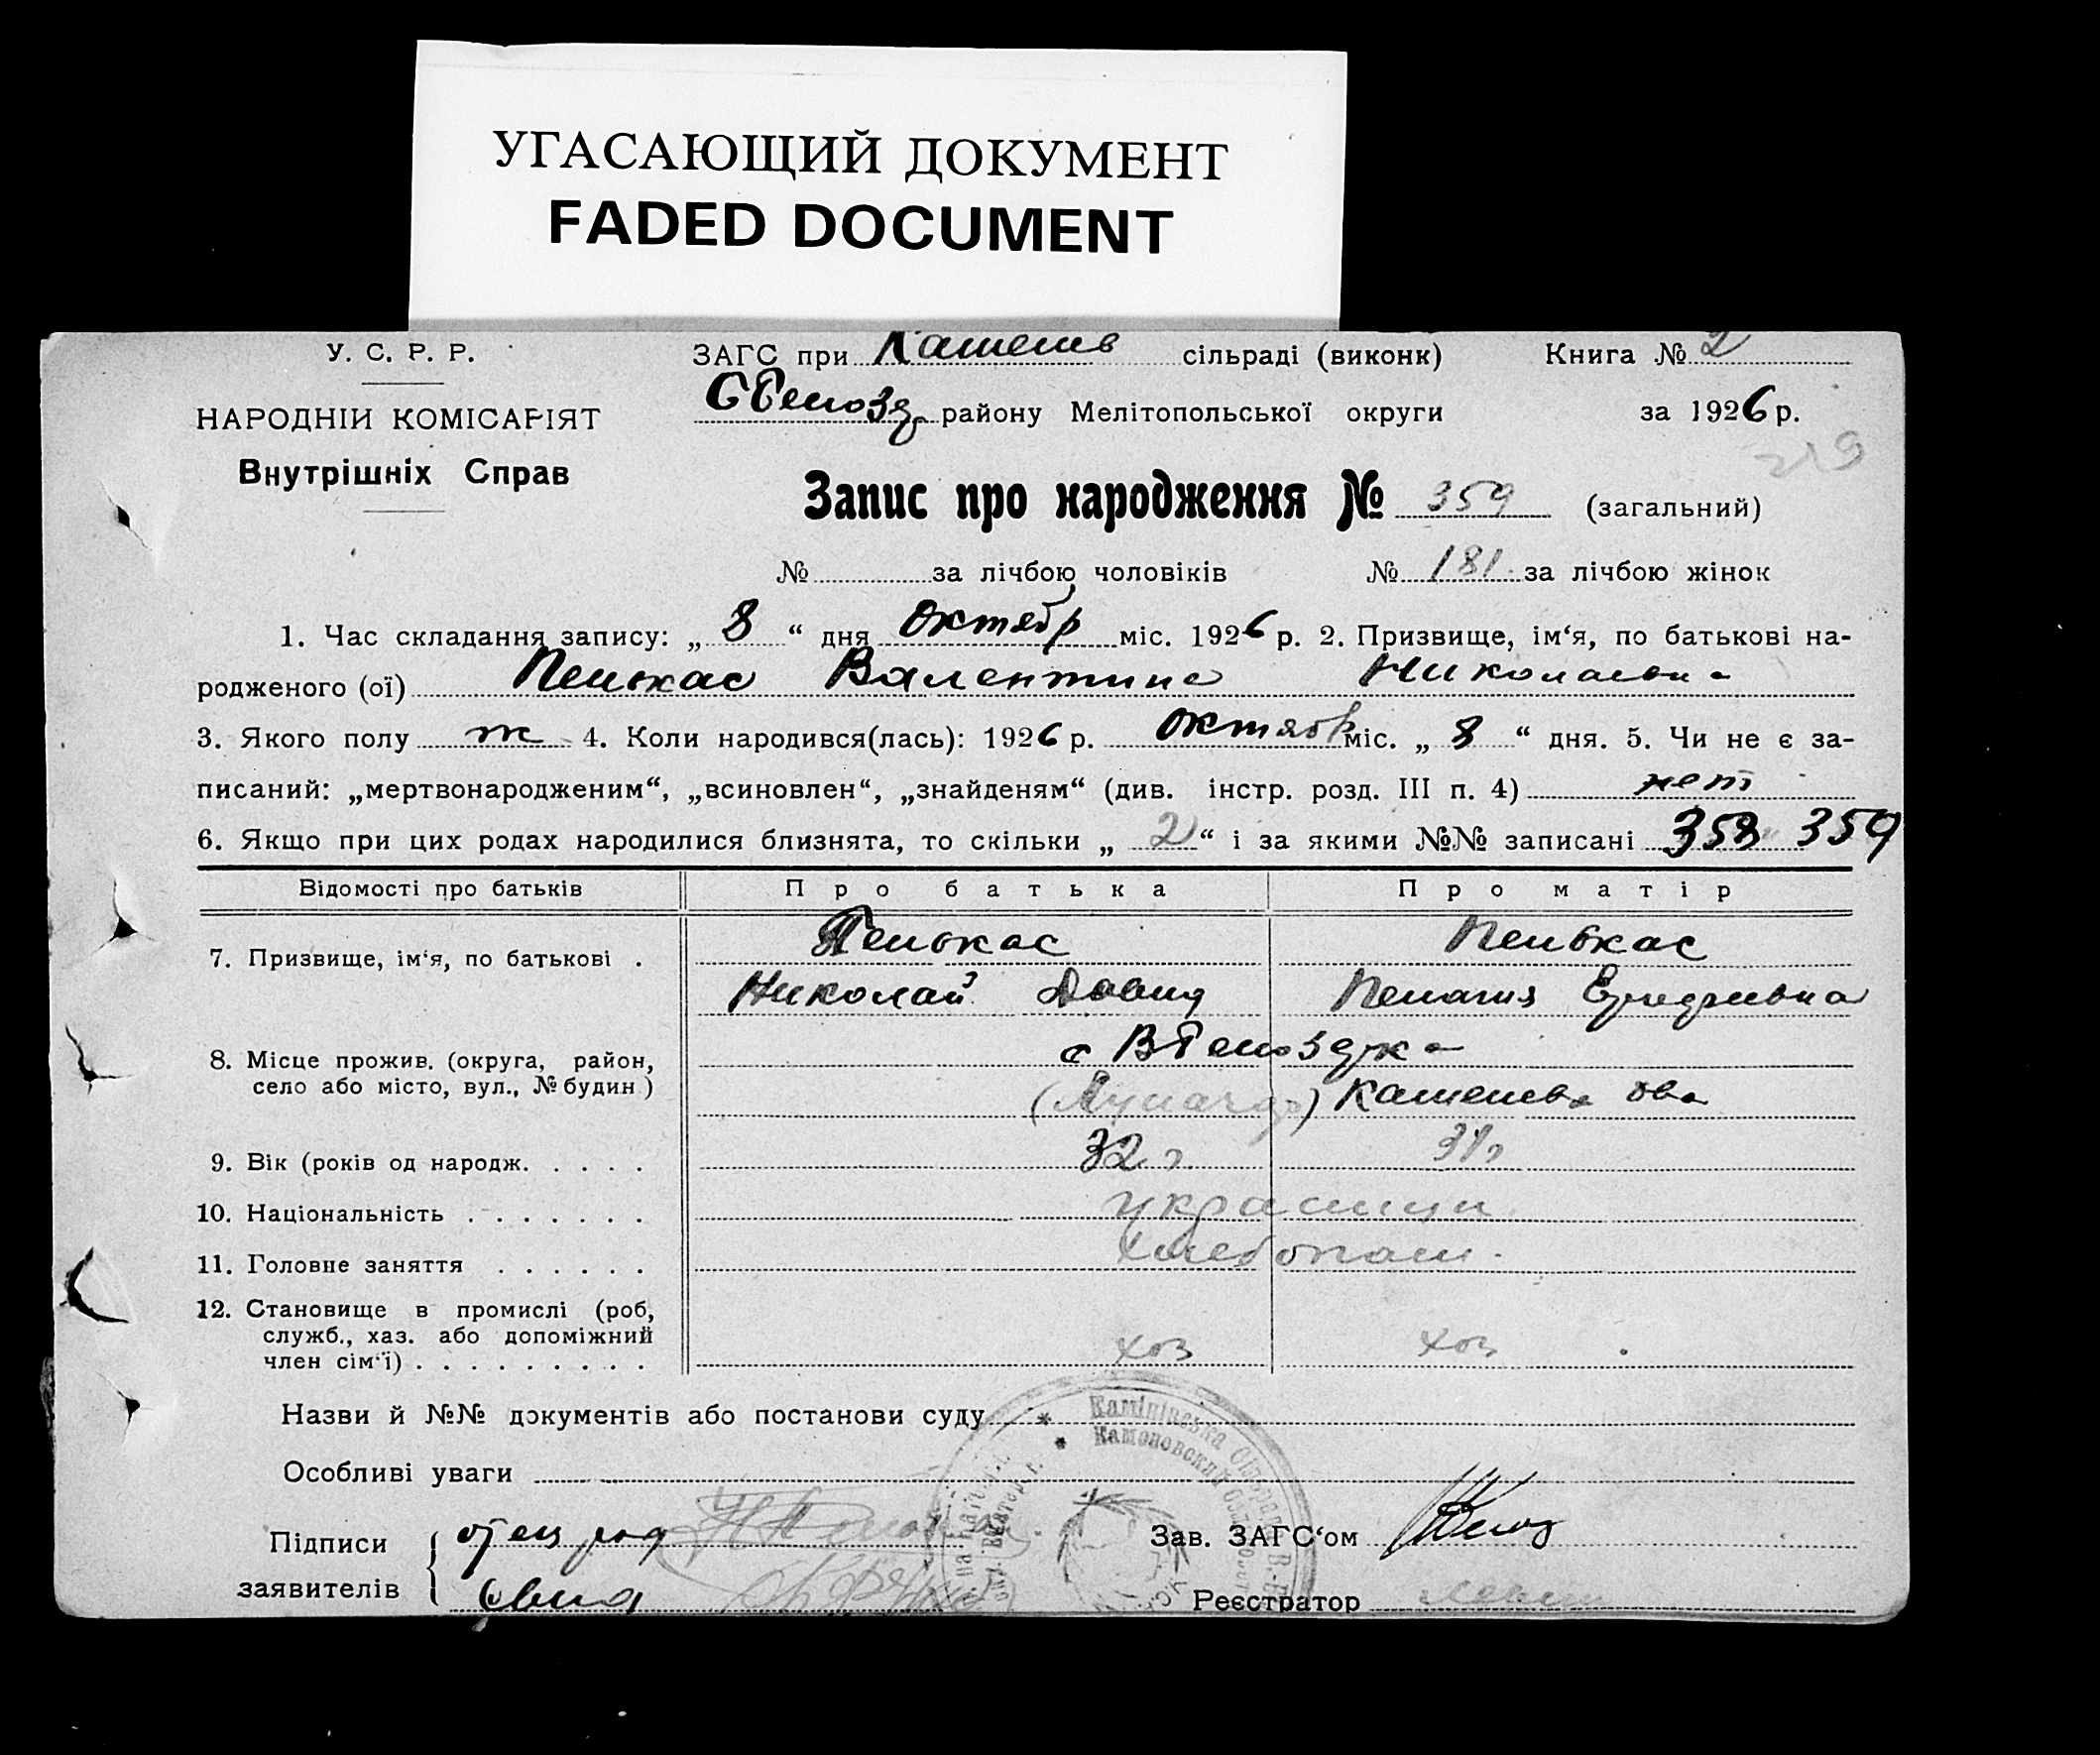 УГАСАЮЩИЙ ДОКУМЕНТ
FADED DOCUMENT
У. С. Р. Р.
НАРОДНІЙ КОМІСАРІЯТ
Внутрішніх Справ
ЗАГС при сільраді (виконк) Книга № 2
району Мелітопольської округи за 1926 р.
219
Запис про народження № 359 (загальний)
№ за лічбою чоловіків № 181 за лічбою жінок
1. Час складання запису: „ 8 “ дня октябр міс. 1926 р. 2. Призвище, ім‘я, по батькові на-
родженого (ої) Пенькас Валентина Николаевна
3. Якого полу ж 4. Коли народився(лась): 1926 р. октябр міс. „ 8 “ дня. 5. Чи не є за-
писаний: „мертвонародженим“, „всиновлен“, „знайденям“ (див. інстр. розд. III п. 4) нет
6. Якщо при цих родах народилися близнята, то скільки „ 2 “ і за якими №№ записані 358 359
Відомості про батьків Про батька Про матір
7. Призвище, ім‘я, по батькові . Пенькас Пенькас
Николай Давид Пелагия
8. Місце прожив. (округа, район,
село або місто, вул., № будин )
9. Вік (років од народж. . . . . 32 г 31 г
10. Національність . . . . . . . украинци
11. Головне заняття . . . . . . хлебопаш.
12. Становище в промислі (роб,
служб., хаз. або допоміжний
член сім‘ї) . . . . . . . . . хоз хоз
Назви й №№ документів або постанови суду
Особливі уваги
Підписи
заявителів
отец
Зав. ЗАГС‘ом
Реєстратор